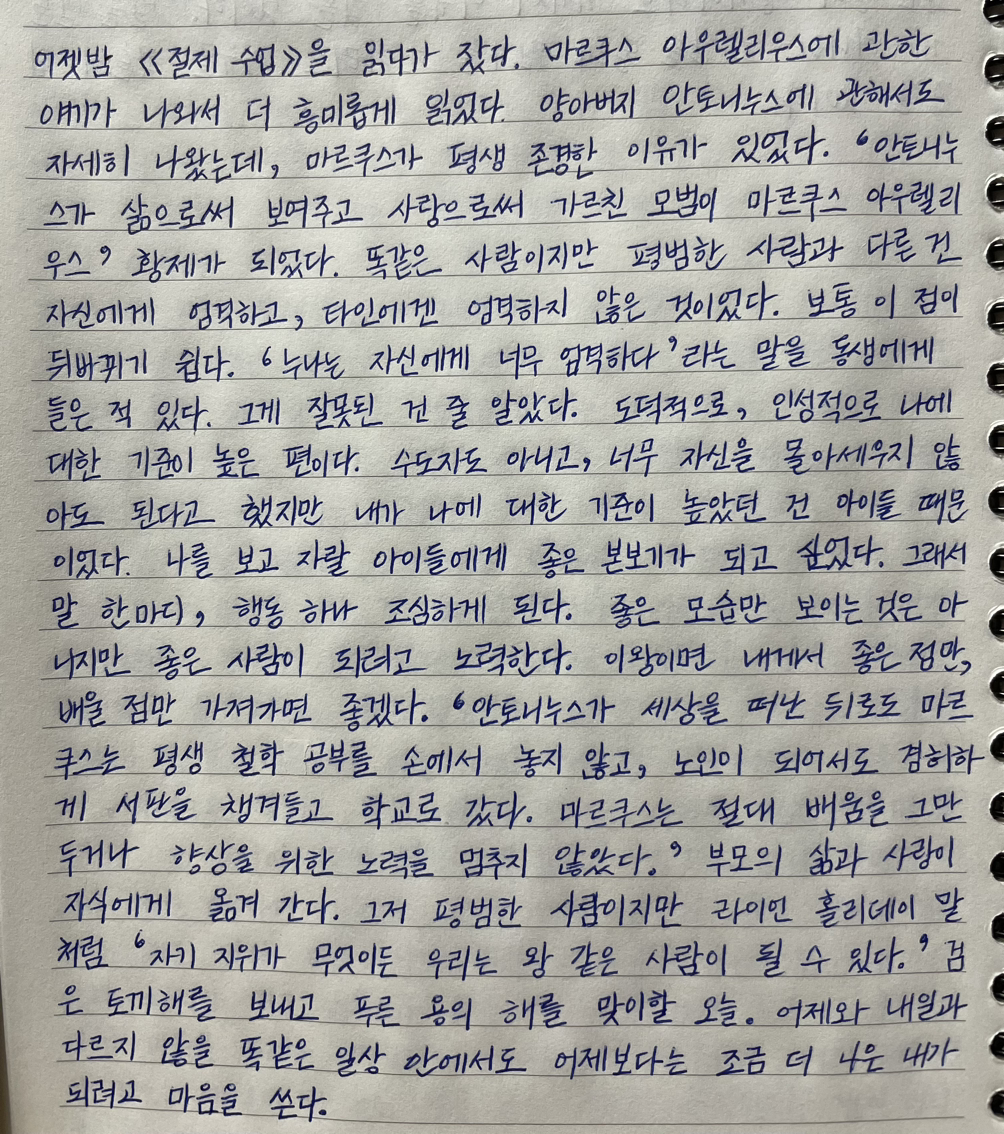 어젯밤 《절제 수업》을 읽다가 잤다. 마르쿠스 아우렐리우스에 관한
얘기가 나와서 더 흥미롭게 읽었다. 양아버지 안토니누스에 관해서도
자세히 나왔는데, 마르쿠스가 평생 존경한 이유가 있었다. ‘안토니누
스가 삶으로써 보여주고 사랑으로써 가르친 모범이 마르쿠스 아우렐리
우스’ 황제가 되었다. 똑같은 사람이지만 평범한 사람과 다른 건
자신에게 엄격하고, 타인에겐 엄격하지 않은 것이었다. 보통 이 점이
뒤바뀌기 쉽다. ‘누나는 자신에게 너무 엄격하다’라는 말을 동생에게
들은 적 있다. 그게 잘못된 건 줄 알았다. 도덕적으로, 인성적으로 나에
대한 기준이 높은 편이다. 수도자도 아니고, 너무 자신을 몰아세우지 않
아도 된다고 했지만 내가 나에 대한 기준이 높았던 건 아이들 때문
이었다. 나를 보고 자랄 아이들에게 좋은 본보기가 되고 싶었다. 그래서
말 한마디, 행동 하나 조심하게 된다. 좋은 모습만 보이는 것은 아
니지만 좋은 사람이 되려고 노력한다. 이왕이면 내게서 좋은 점만,
배울 점만 가져가면 좋겠다. ‘안토니누스가 세상을 떠난 뒤로도 마르
쿠스는 평생 철학 공부를 손에서 놓지 않고, 노인이 되어서도 겸허하
게 석판을 챙겨들고 학교로 갔다. 마르쿠스는 절대 배움을 그만
두거나 향상을 위한 노력을 멈추지 않았다.’ 부모의 삶과 사랑이
자식에게 옮겨 간다. 그저 평범한 사람이지만 라이언 홀리데이 말
처럼 ‘자기 지위가 무엇이든 우리는 왕 같은 사람이 될 수 있다.’ 검
은 토끼해를 보내고 푸른 용의 해를 맞이할 오늘. 어제와 내일과
다르지 않을 똑같은 일상 안에서도 어제보다는 조금 더 나은 내가
되려고 마음을 쓴다.